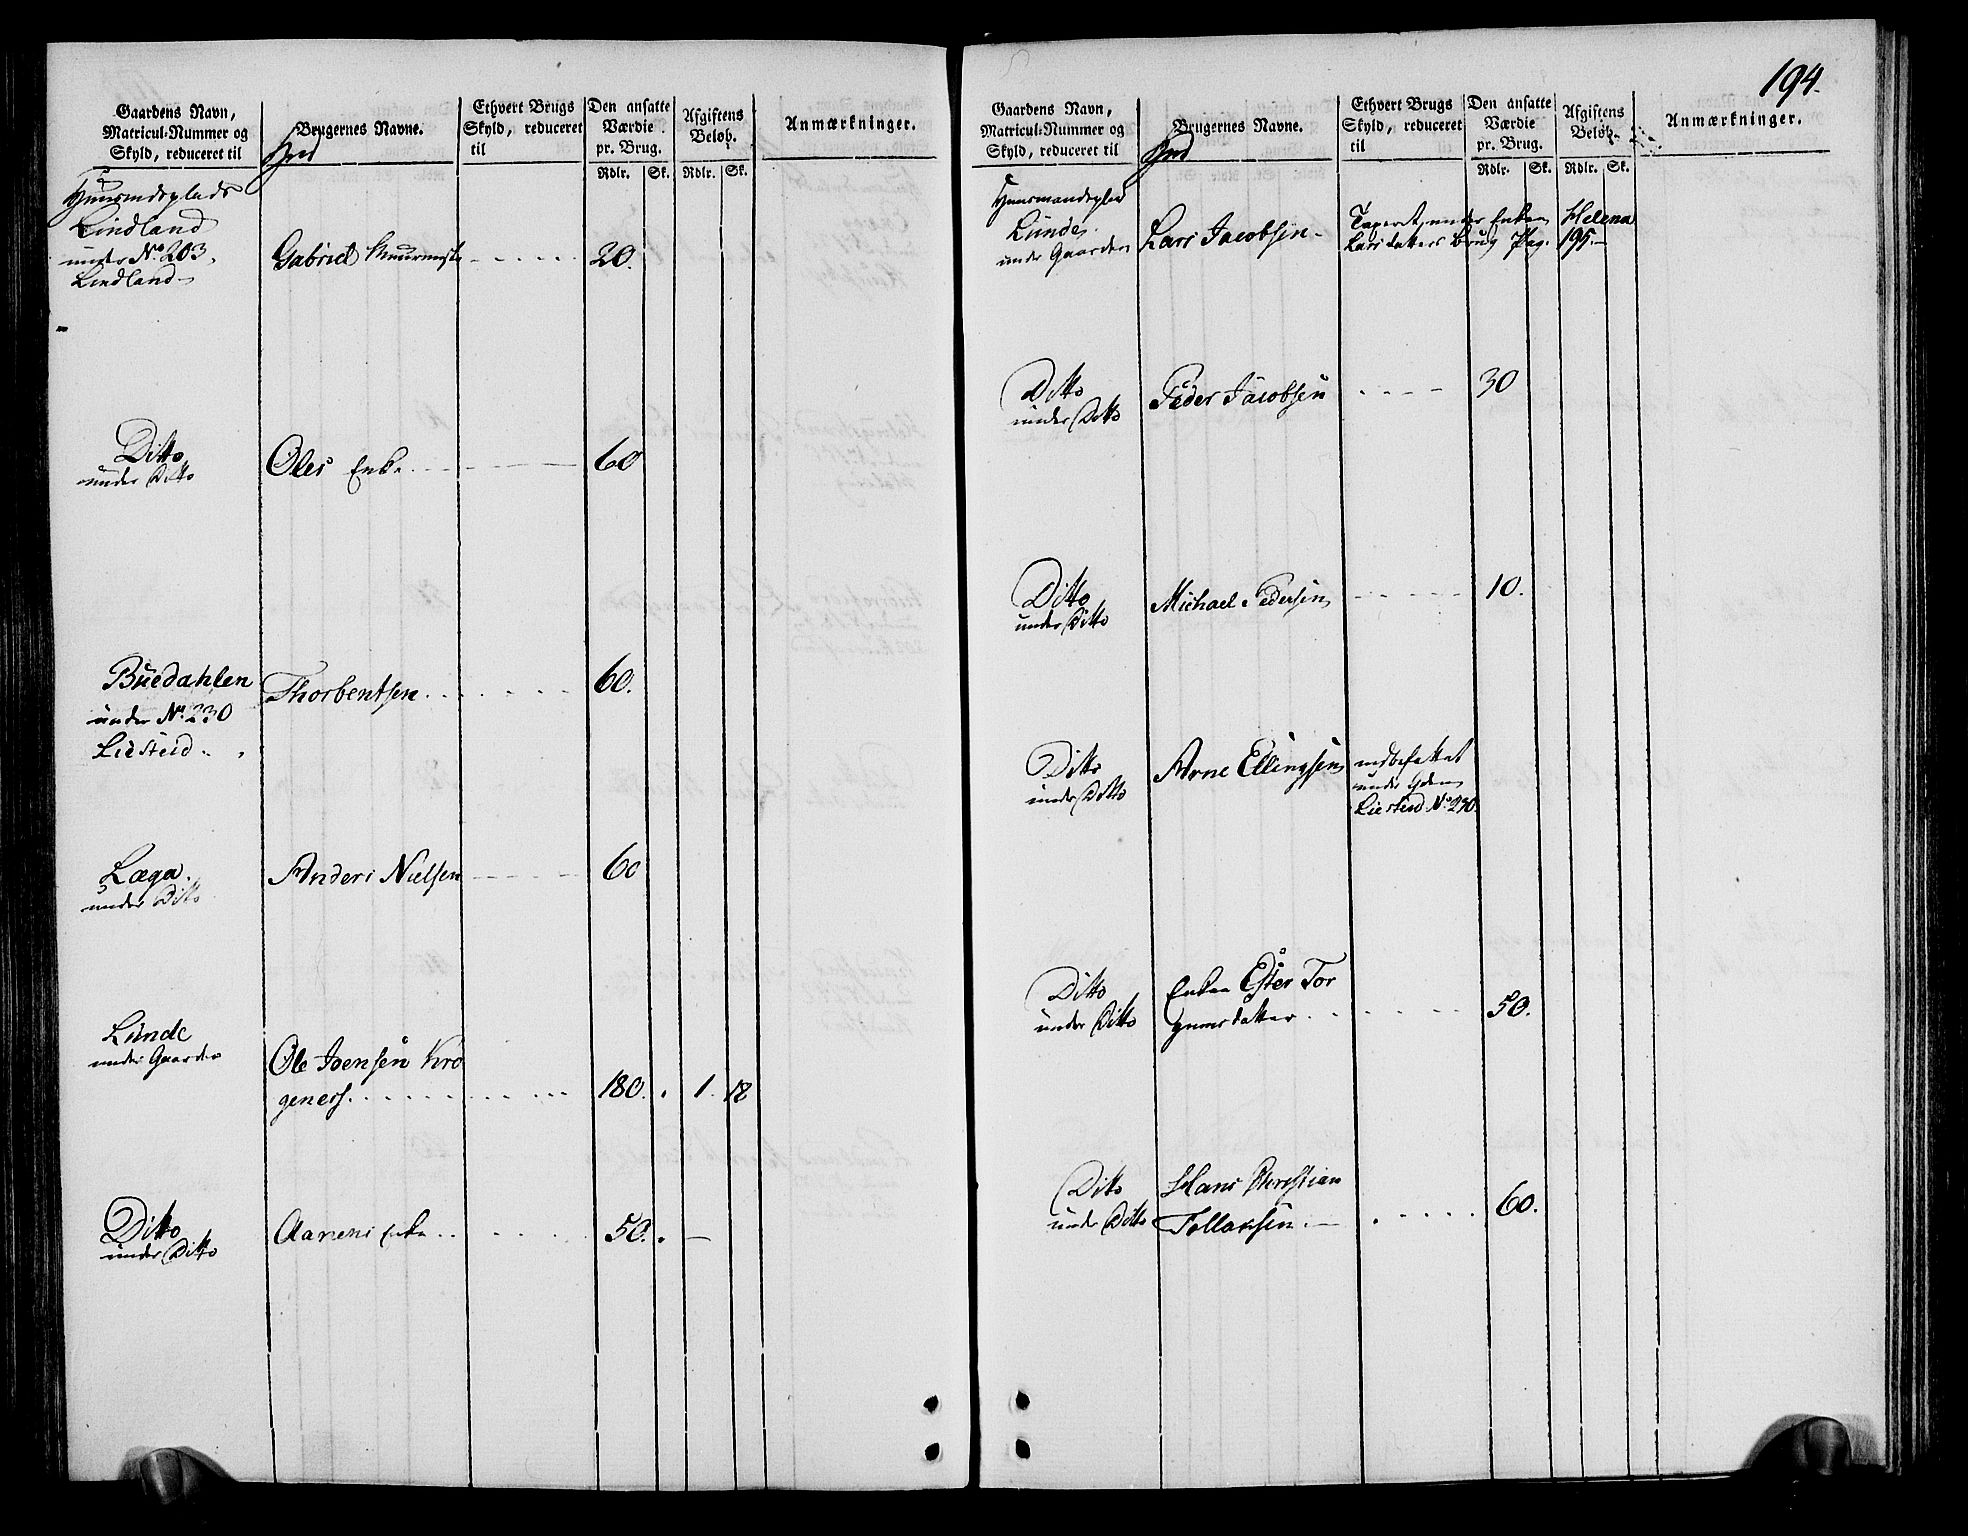 194.
Gaardens Navn,
Matricul-Nummer og
Skyld, reduceret til
Brugernes Navne.
Ethvert Brugs
Skyld, reduceret
til
Den ansatte
Værdie
pr. Brug.
Rdlr. Sk.
Afgiftens
Beløb.
Rdlr. Sk.
Anmærkninger.
Huusmdsplads
Lindland
under No 203
Lindland
Gabriel Muurmester 20.
Ditto
under Ditto
Oles Enke 60
Buedahlen
under No 230
Liesteid
Thorbentsen 60.
Læga
under Ditto
Anders Nielsen 60
Lunde
under Gaarden
Ole Joensen Kro
geners. 180. 1. 18
Ditto
under Ditto
Aanens Enke 50. —
Gaardens Navn,
Matricul-Nummer og
Skyld, reduceret til
Brugernes Navne.
Ethvert Brugs
Skyld, reduceret
til
Den ansatte
Værdie
pr. Brug.
Rdlr. Sk.
Afgiftens
Beløb.
Rdlr. Sk.
Anmærkninger.
Huusmandsplad
Lunde
under Gaarden
Lars Jacobsen
Taxeret under Enken Helena
Larsdatters Brug Pag. 195.
Ditto
under Ditto
Peder Jacobsen 30
Ditto
under Ditto
Michael Pedersen 10.
Ditto
under Ditto
Arne Ellingsen
indbefattet
under
Liesteid No 230.
Ditto
under Ditto
Enken Ester Tor
50.
Ditto
under Ditto
Hans Christian
Tollaksen 60.